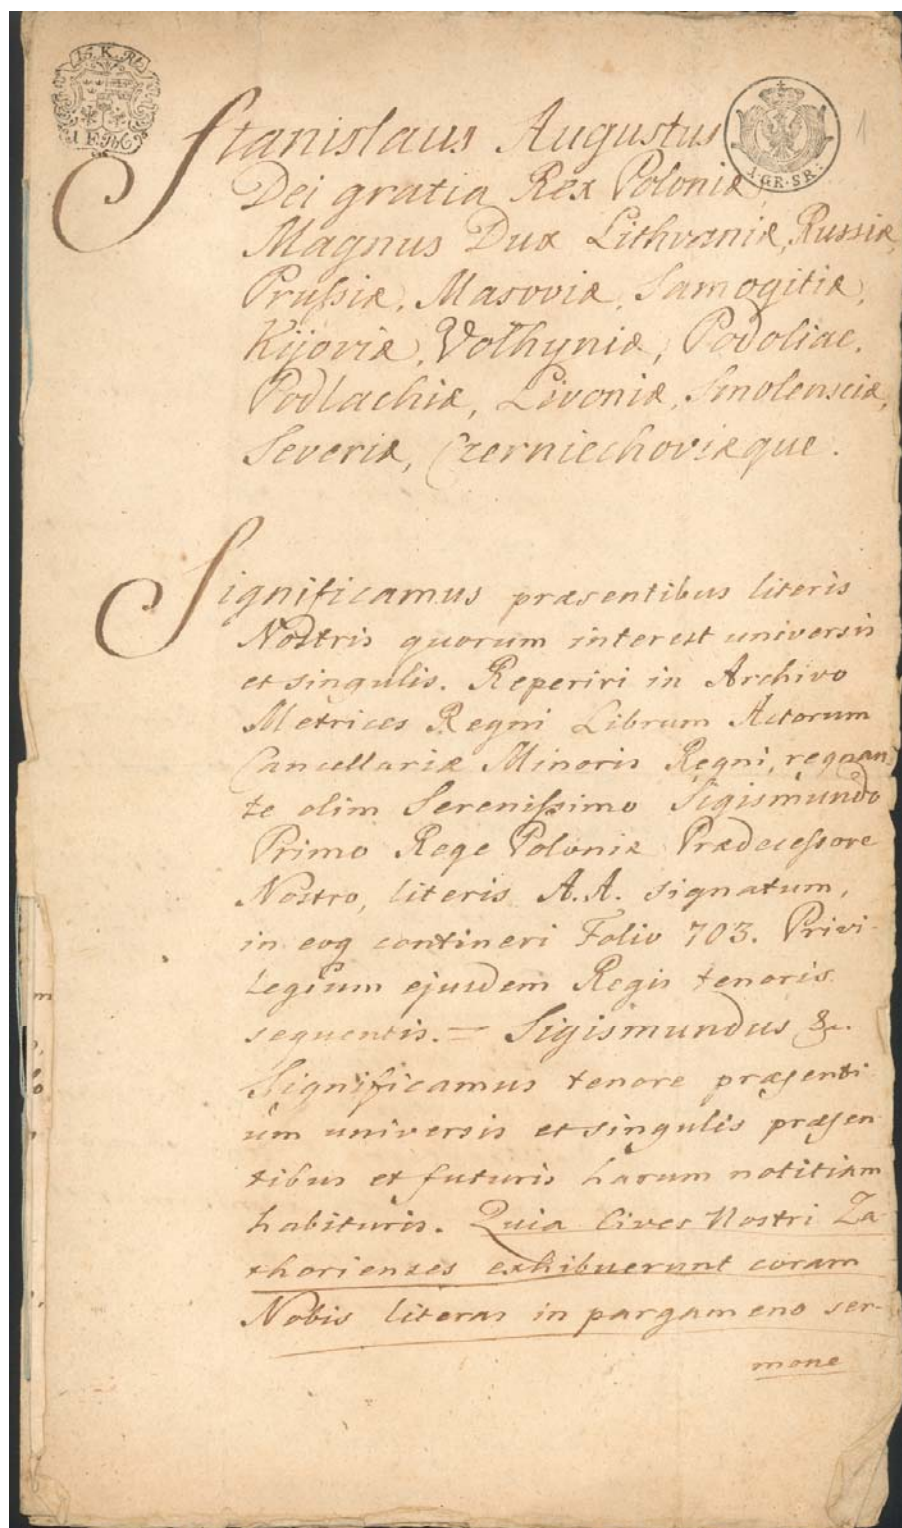 15. K. R.
1 GR. SR.
1
Stanislaus Augustus
Dei gratia Rex Poloniæ
Magnus Dux Lithvaniæ, Russiæ,
Prussiæ, Masoviæ, Samogitiæ,
Kijoviæ, Volhyniæ, Podoliae,
Podlachiæ, Livoniæ, Smolensciæ,
Severiæ, Czerniechoviæque.
Significamus præsentibus literis
Nostris quorum interest universis
et singulis. Reperiri in Archivo
Metrices Regni Librum Actorum
Cancellariæ Minoris Regni, regnan
te olim Serenissimo Sigismundo
Primo Rege Poloniæ Prædecessore
Nostro, literis A.A. signatum,
in eoq contineri Folio 703. Privi-
legium ejusdem Regis tenoris
sequentis. = Sigismundus &c.
Significamus tenore præsenti
um universis et singulis præsen
tibus et futuris harum notitiam
habituris. Quia Cives Nostri Za
thorienses exhibuerunt coram
Nobis literas in pargameno ser-
mone